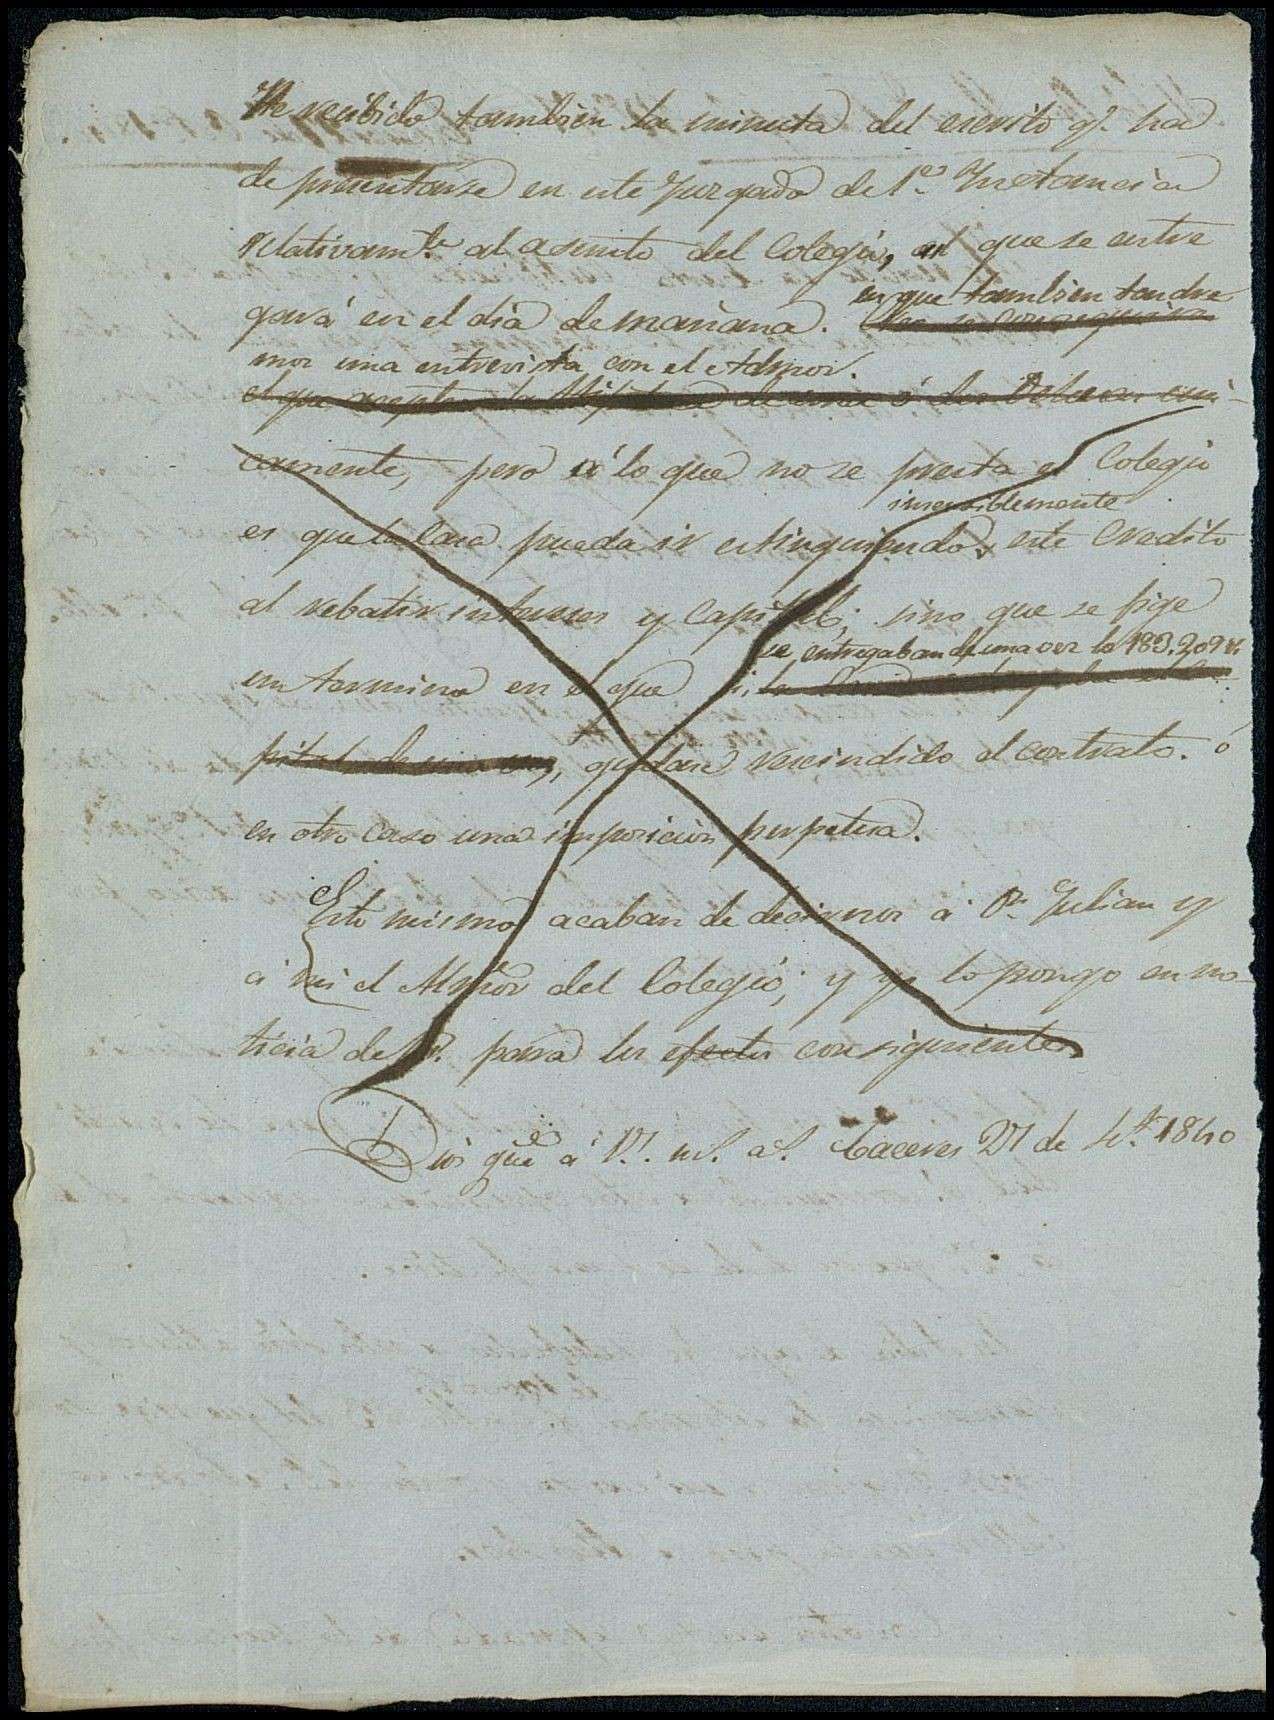 He recibido tambien la minuta del escrito q.e ha
de presentarse en este Juzgado de 1.a Instancia
relativam.te al asunto del Colegio, que se entre
gará en el dia de mañana.
en que tambien tendre
mos una entrevista con el Admor.
el que acepten la ó las
camente, pero á lo que no se presta el Colegio
insensiblemente
es que la Casa pueda ir estinguiendo este Credito
al rebatir intereses y Capital; sino que se fije
se entregaban de una vez los 183.209 rs
un termino en el que si
pital de una vez, quedase rescindido el contrato. ó
en otro caso una imposicion perpetua.
Esto mismo acaban de decirnos á D.n Julian y
á mi el Admor del Colegio; y yo lo pongo en no-
ticia de V. para los efectos consiguientes
Dios gue á V. m.s a.s Caceres 21 de 1840